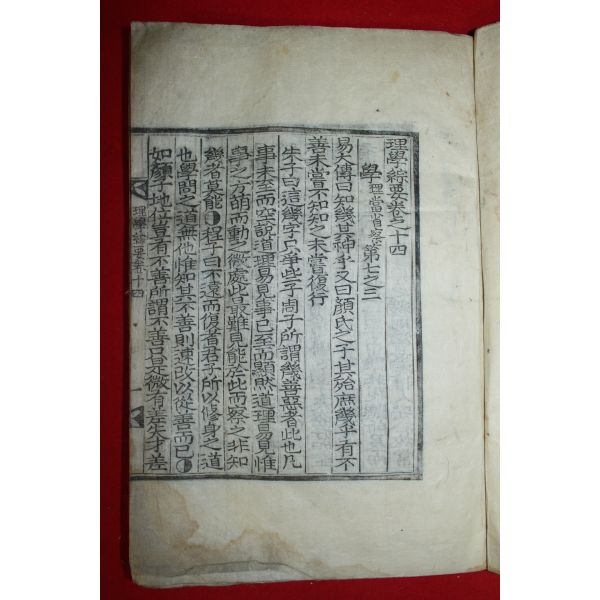 理學綜要卷之十四
學 理當省察 第七之三
易大傳曰知幾其神乎又曰顔氏之子其殆庶幾乎有不
善未嘗不知知之未嘗復行
朱子曰這幾字只爭些子周子所謂幾善惡者此也凡
事未至而空說道理易見事已至而顯然道理易見惟
事之方萌而動之微處此最難見能於此而察之非知
幾者莫能 程子曰不遠而復者君子所以修身之道
也學問之道無他惟知其不善則速改以從善而已
如顔子地位豈有不善所謂不善只是微有差失才差
理學綜要卷十四
一